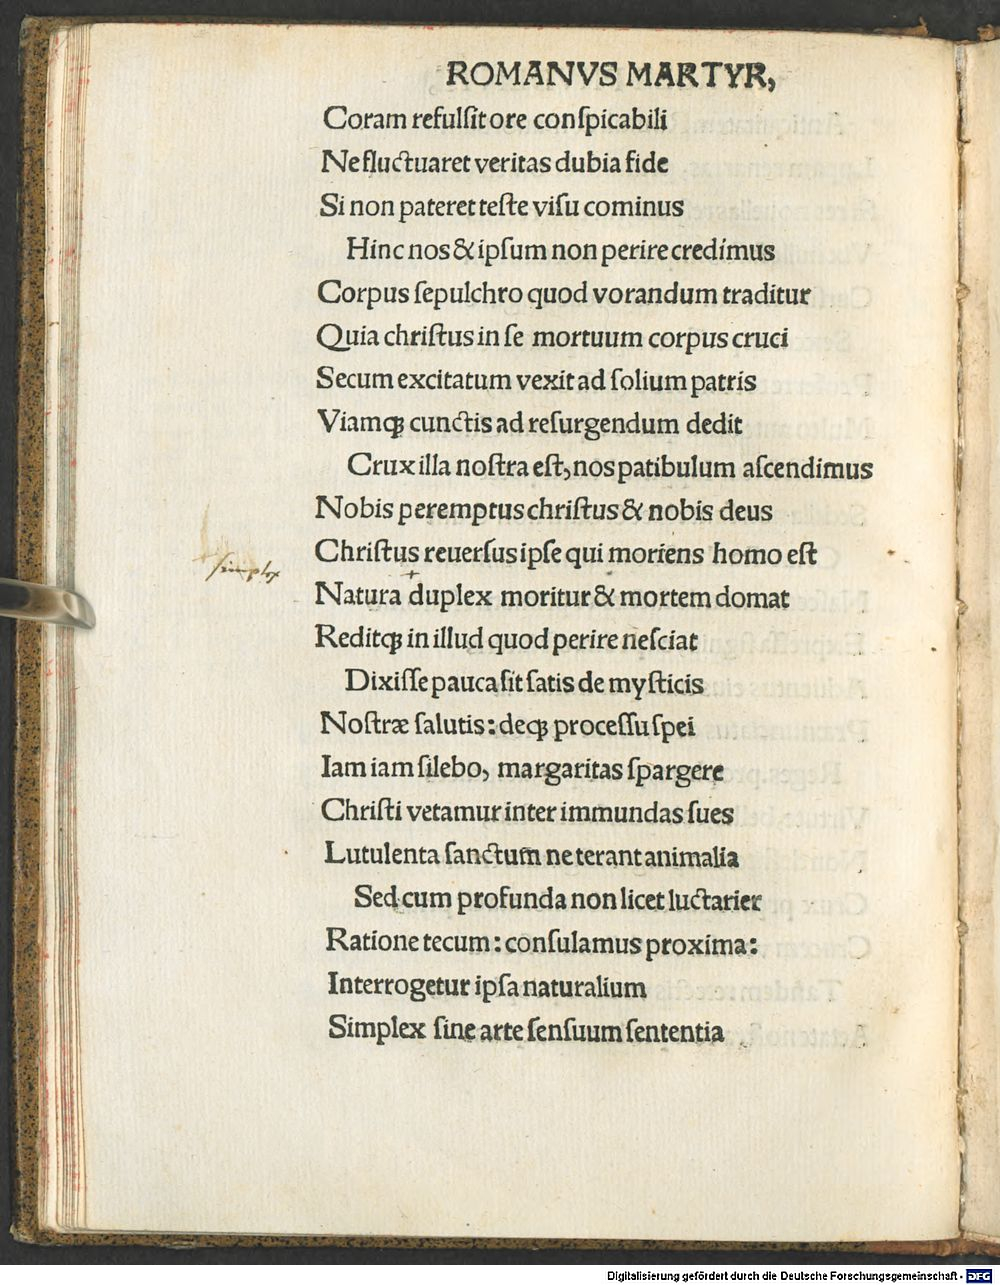 ROMANVS MARTYR,
Coram refulſit ore conſpicabili
Ne fluctuaret veritas dubia fide
Si non pateret teſte viſu cominus
Hinc nos & ipſum non perire credimus
Corpus ſepulchro quod vorandum traditur
Quia chriſtus in ſe mortuum corpus cruci
Secum excitatum vexit ad ſolium patris
Viamqꝫ cunctis ad reſurgendum dedit
Crux illa noſtra eſt, nos patibulum aſcendimus
Nobis peremptus chriſtus & nobis deus
Chriſtus reuerſus ipſe qui moriens homo eſt
simplex
Natura duplex moritur & mortem domat
Reditqꝫ in illud quod perire neſciat
Dixiſſe pauca ſit ſatis de myſticis
Noſtræ ſalutis: deqꝫ proceſſu ſpei
Iam iam ſilebo, margaritas ſpargere
Chriſti vetamur inter immundas ſues
Lutulenta ſanctum ne terant animalia
Sed cum profunda non licet luctarier
Ratione tecum: conſulamus proxima:
Interrogetur ipſa naturalium
Simplex ſine arte ſenſuum ſententia
Digitalisierung gefördert durch die Deutsche Forschungsgemeinschaft - DFG